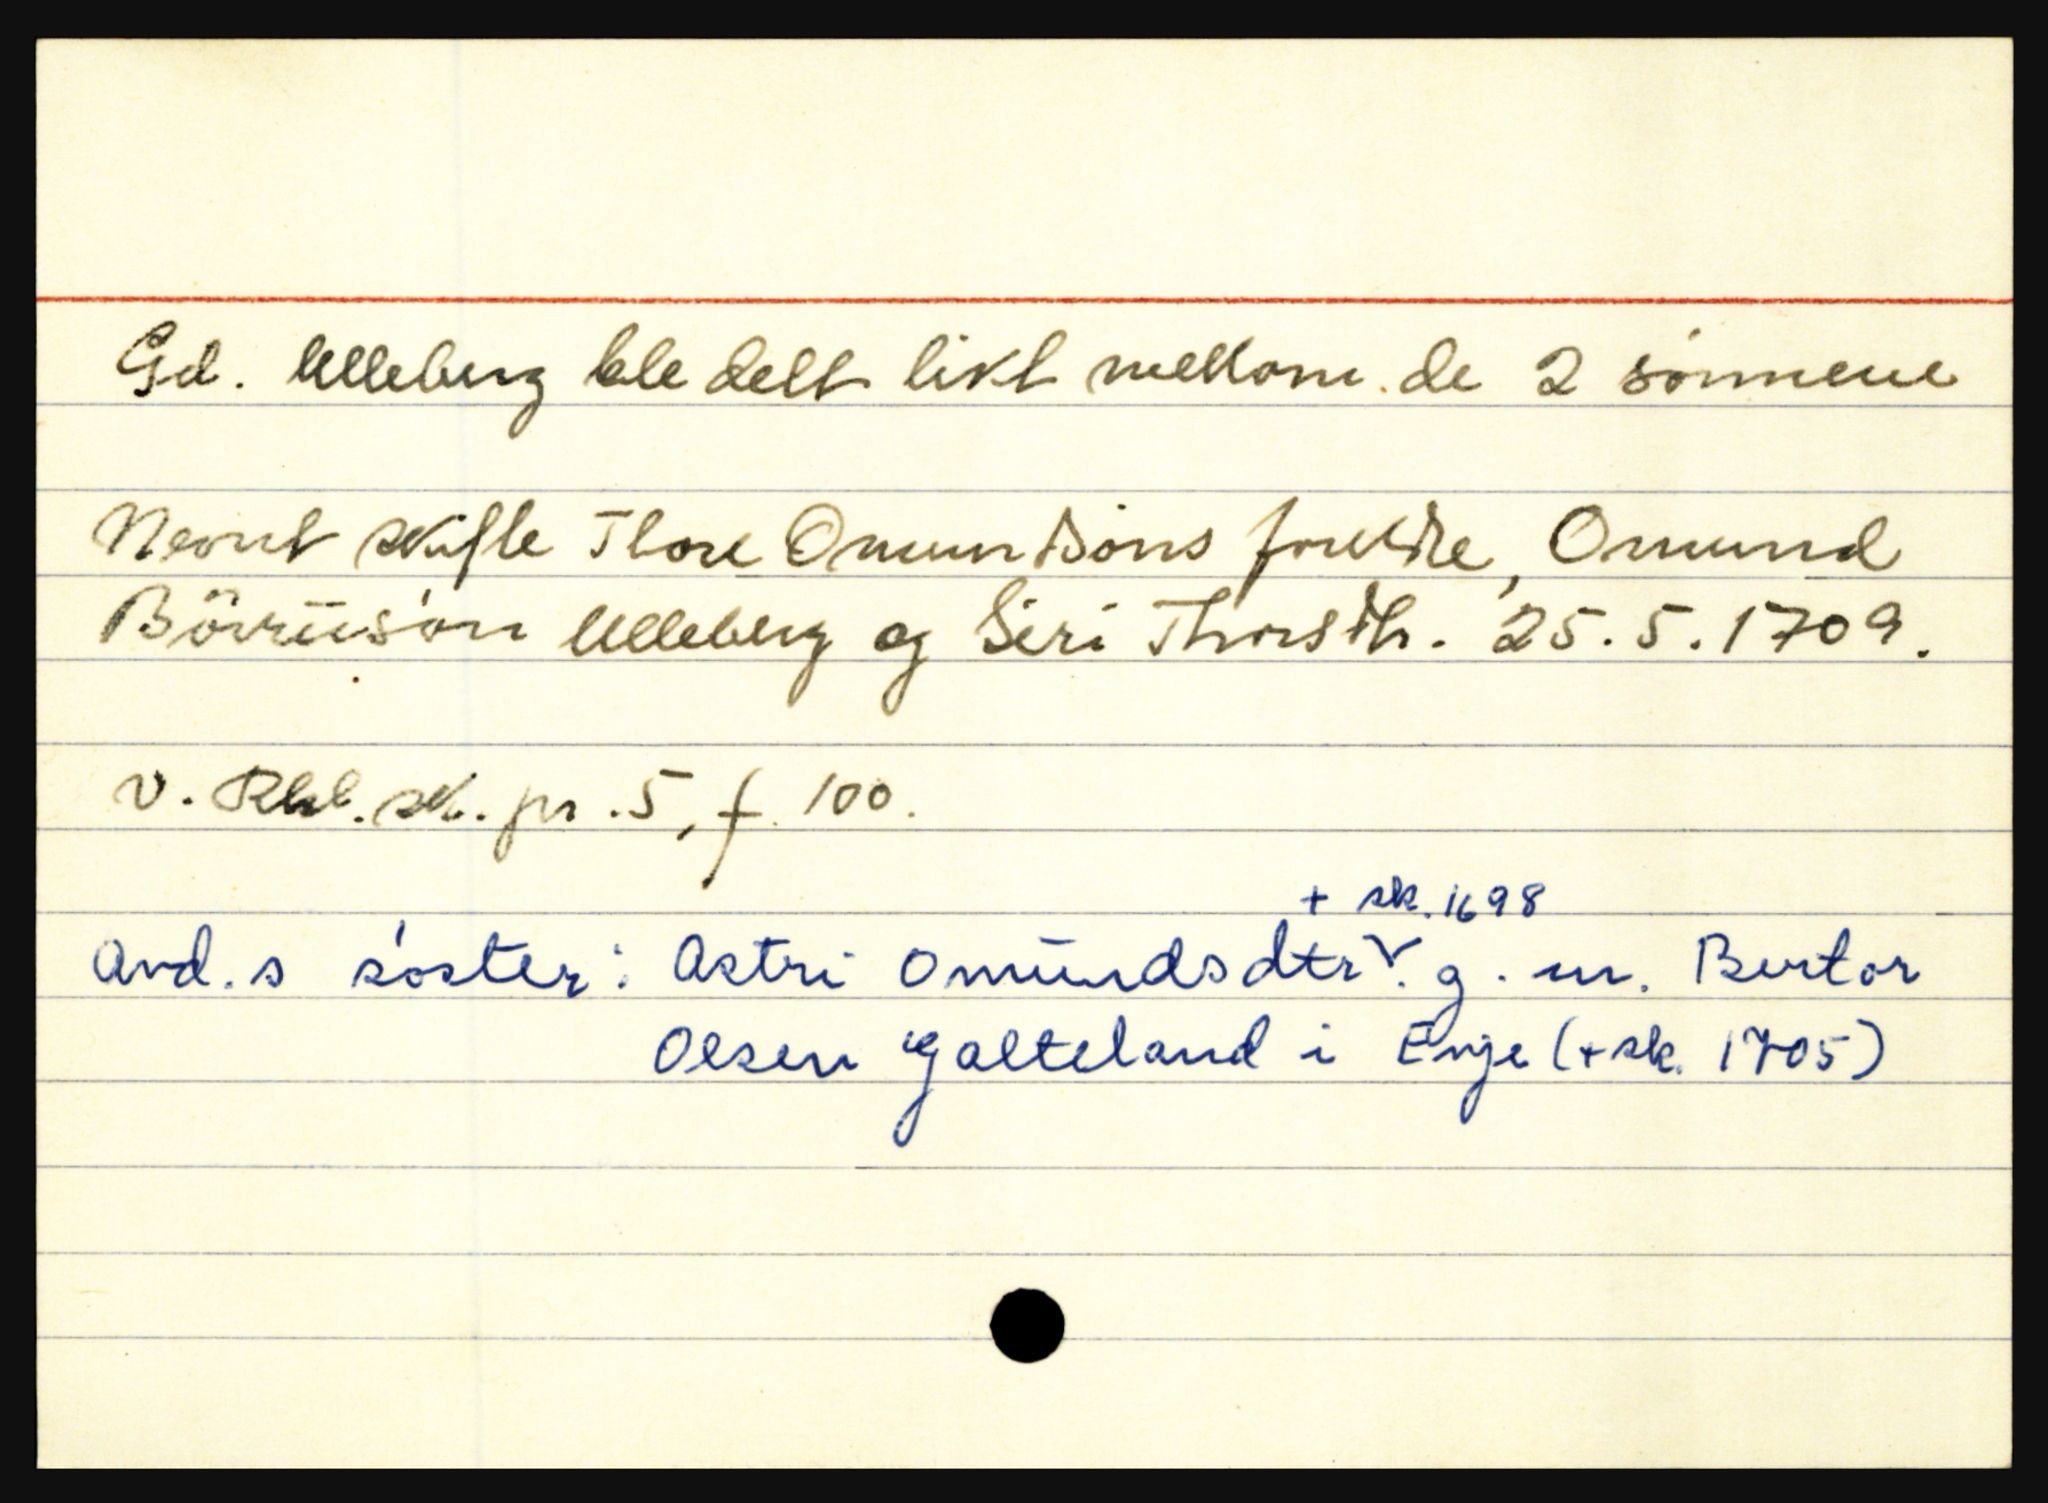 Gd. Ulleberg ble delt likt mellom de 2 sønnene
Nevnt skifte Thore Omundsøns foreldre, Omund
Børriisøn Ulleberg og Siri Thorsdtr. 25.5.1709.
v. Rbl. sk. pr. 5, f. 100.
+ sk. 1698
Avd.s søster: Astri Omundsdtr. g. m. Bertor
Olsen Galteland i Evje (+ sk. 1705)